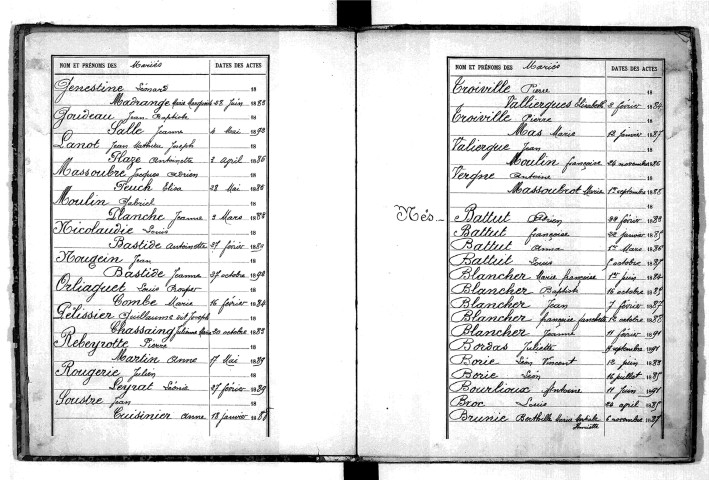 NOM ET PRÉNOMS DES Mariés DATES DES ACTES
Genestine Léonard 18
Madrange Marie Marguerite 28 Juin 1886
Goudeau Jean Baptiste 18
Salle Jeanne 4 Mai 1892
Lanot Jean Mathieu Joseph 18
Plaze Antoinette 3 Avril 1886
Massoubre Jacques Adrien 18
Teuch Elisa 28 Mai 1888
Moulin Gabriel 18
Planche Jeanne 3 Mars 1884
Nicolaudie Louis 18
Bastide Antoinette 27 février
Nougein Jean 18
Bastide Jeanne 27 octobre 1890
Orliaguet Louis Prosper 18
Combe Marie 16 février 1884
Pélissier Guillaume dit Joseph 18
Chassaing Julienne Marie 20 octobre 1883
Rebeyrotte Pierre 18
Martin Anne 17 Mai 1889
Rougerie Julien 18
Leyrat Léonie 27 février 1889
Soustre Jean 18
Cuisinier Anne 18 janvier 1885
NOM ET PRÉNOMS DES Mariés DATES DES ACTES
Troiville Pierre 18
Vallierques Elisabeth 9 février 1884
Troiville Pierre 18
Mas Marie 12 janvier 1887
Valierque Jean 18
Moulin françoise 24 novembre 1886
Vergne Antoine 18
Massoubrot Marie 1er septembre 1888
Nés.
Battut Adrien 22 février 1883
Battut françoise 22 janvier 1885
Battut Anna 1er Mars 1886
Battut Louis octobre 1887
Blancher Marie françoise 1er juin 1884
Blancher Baptiste 16 octobre 1885
Blancher Jean 7 février 1887
Blancher françoise octobre 1888
Blancher Jeanne 11 février 1891
Bordas Juliette septembre 1891
Borie Léon Vincent 12 juin 1883
Borie Léon 16 juillet 1885
Bourlioux Antoine 11 Juin 1891
Broc Louis 24 avril 1885
Brunie Berthille Maria novembre 1887
Henriette